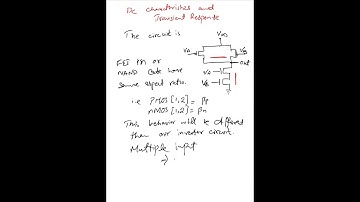 DC charactristics and
Transient Response
The circuit is
VDD
VA
VB
out
FET in or
NAND Gate have
VA
VB
Same aspect ratio.
i.e PMOS [1,2] = βp
nMOS [1,2] = βn
This behavior will be different
than our invertor circuit.
Multiple input